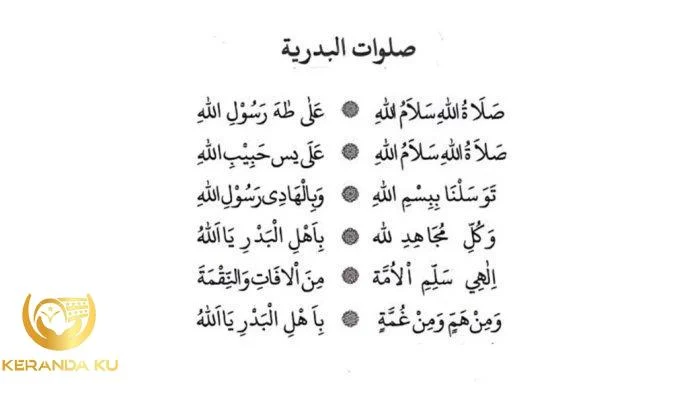 صلوات البدرية
صَلَاةُ اللهِ سَلاَمُ اللهِ ۞ عَلٰى طٰهَ رَسُوْلِ اللهِ
صَلاَةُ اللهِ سَلاَمُ اللهِ ۞ عَلَى يس حَبِيْبِ اللهِ
تَوَسَلْنَا بِبِسْمِ اللهِ ۞ وَبِالْهَادِى رَسُوْلِ اللهِ
وَكُلِّ مُجَاهِدِ لله ۞ بِاَهْلِ الْبَدْرِ يَا اَللهُ
اِلٰهِي سَلِّمِ اْلاُمَّة ۞ مِنَ اْلافَاتِ وَالنِّقْمَةَ
وَمِنْ هَمٍّ وَمِنْ غُمَّةٍ ۞ بِاَ هْلِ الْبَدْرِ يَا اَللهُ
KERANDA KU